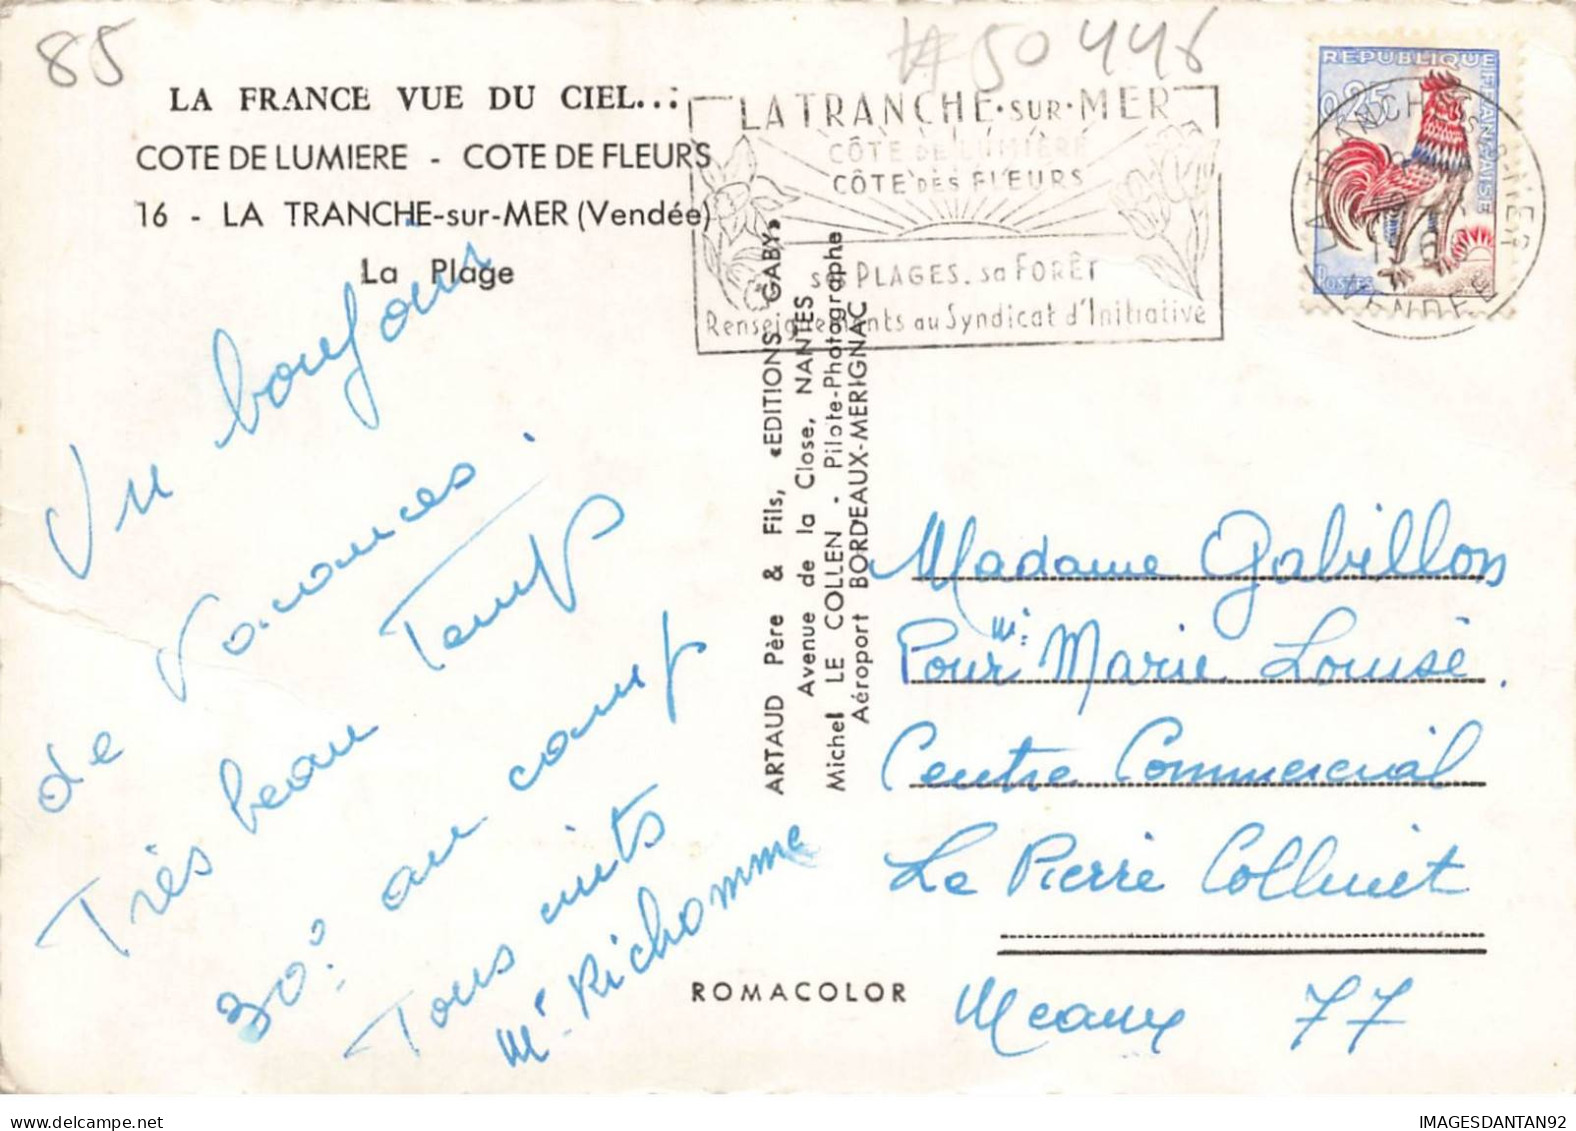 85
#50446
LA FRANCE VUE DU CIEL...
COTE DE LUMIERE - COTE DE FLEURS
16 - LA TRANCHE-sur-MER (Vendée)
La Plage
LA TRANCHE·SUR·MER
CÔTE DE LUMIÈRE
CÔTE DES FLEURS
PLAGES. sa FORÊT
Renseignements au Syndicat d'Initiative
REPUBLIQUE FRANÇAISE
0,25
POSTES
LA TRANCHE S-MER
VENDEE
Un bonjour
de vacances.
Très beau Temps
30° au camp
Tous nuits
Mr Richomme
ARTAUD Père & Fils, «EDITIONS GABY»
Avenue de la Close, NANTES
Michel LE COLLEN - Pilote-Photographe
Aéroport BORDEAUX-MERIGNAC
ROMACOLOR
Madame Gabillon
Pour Marie Louise.
Centre Commercial
Le Pierre Collinet
Meaux 77
IMAGESDANTAN92